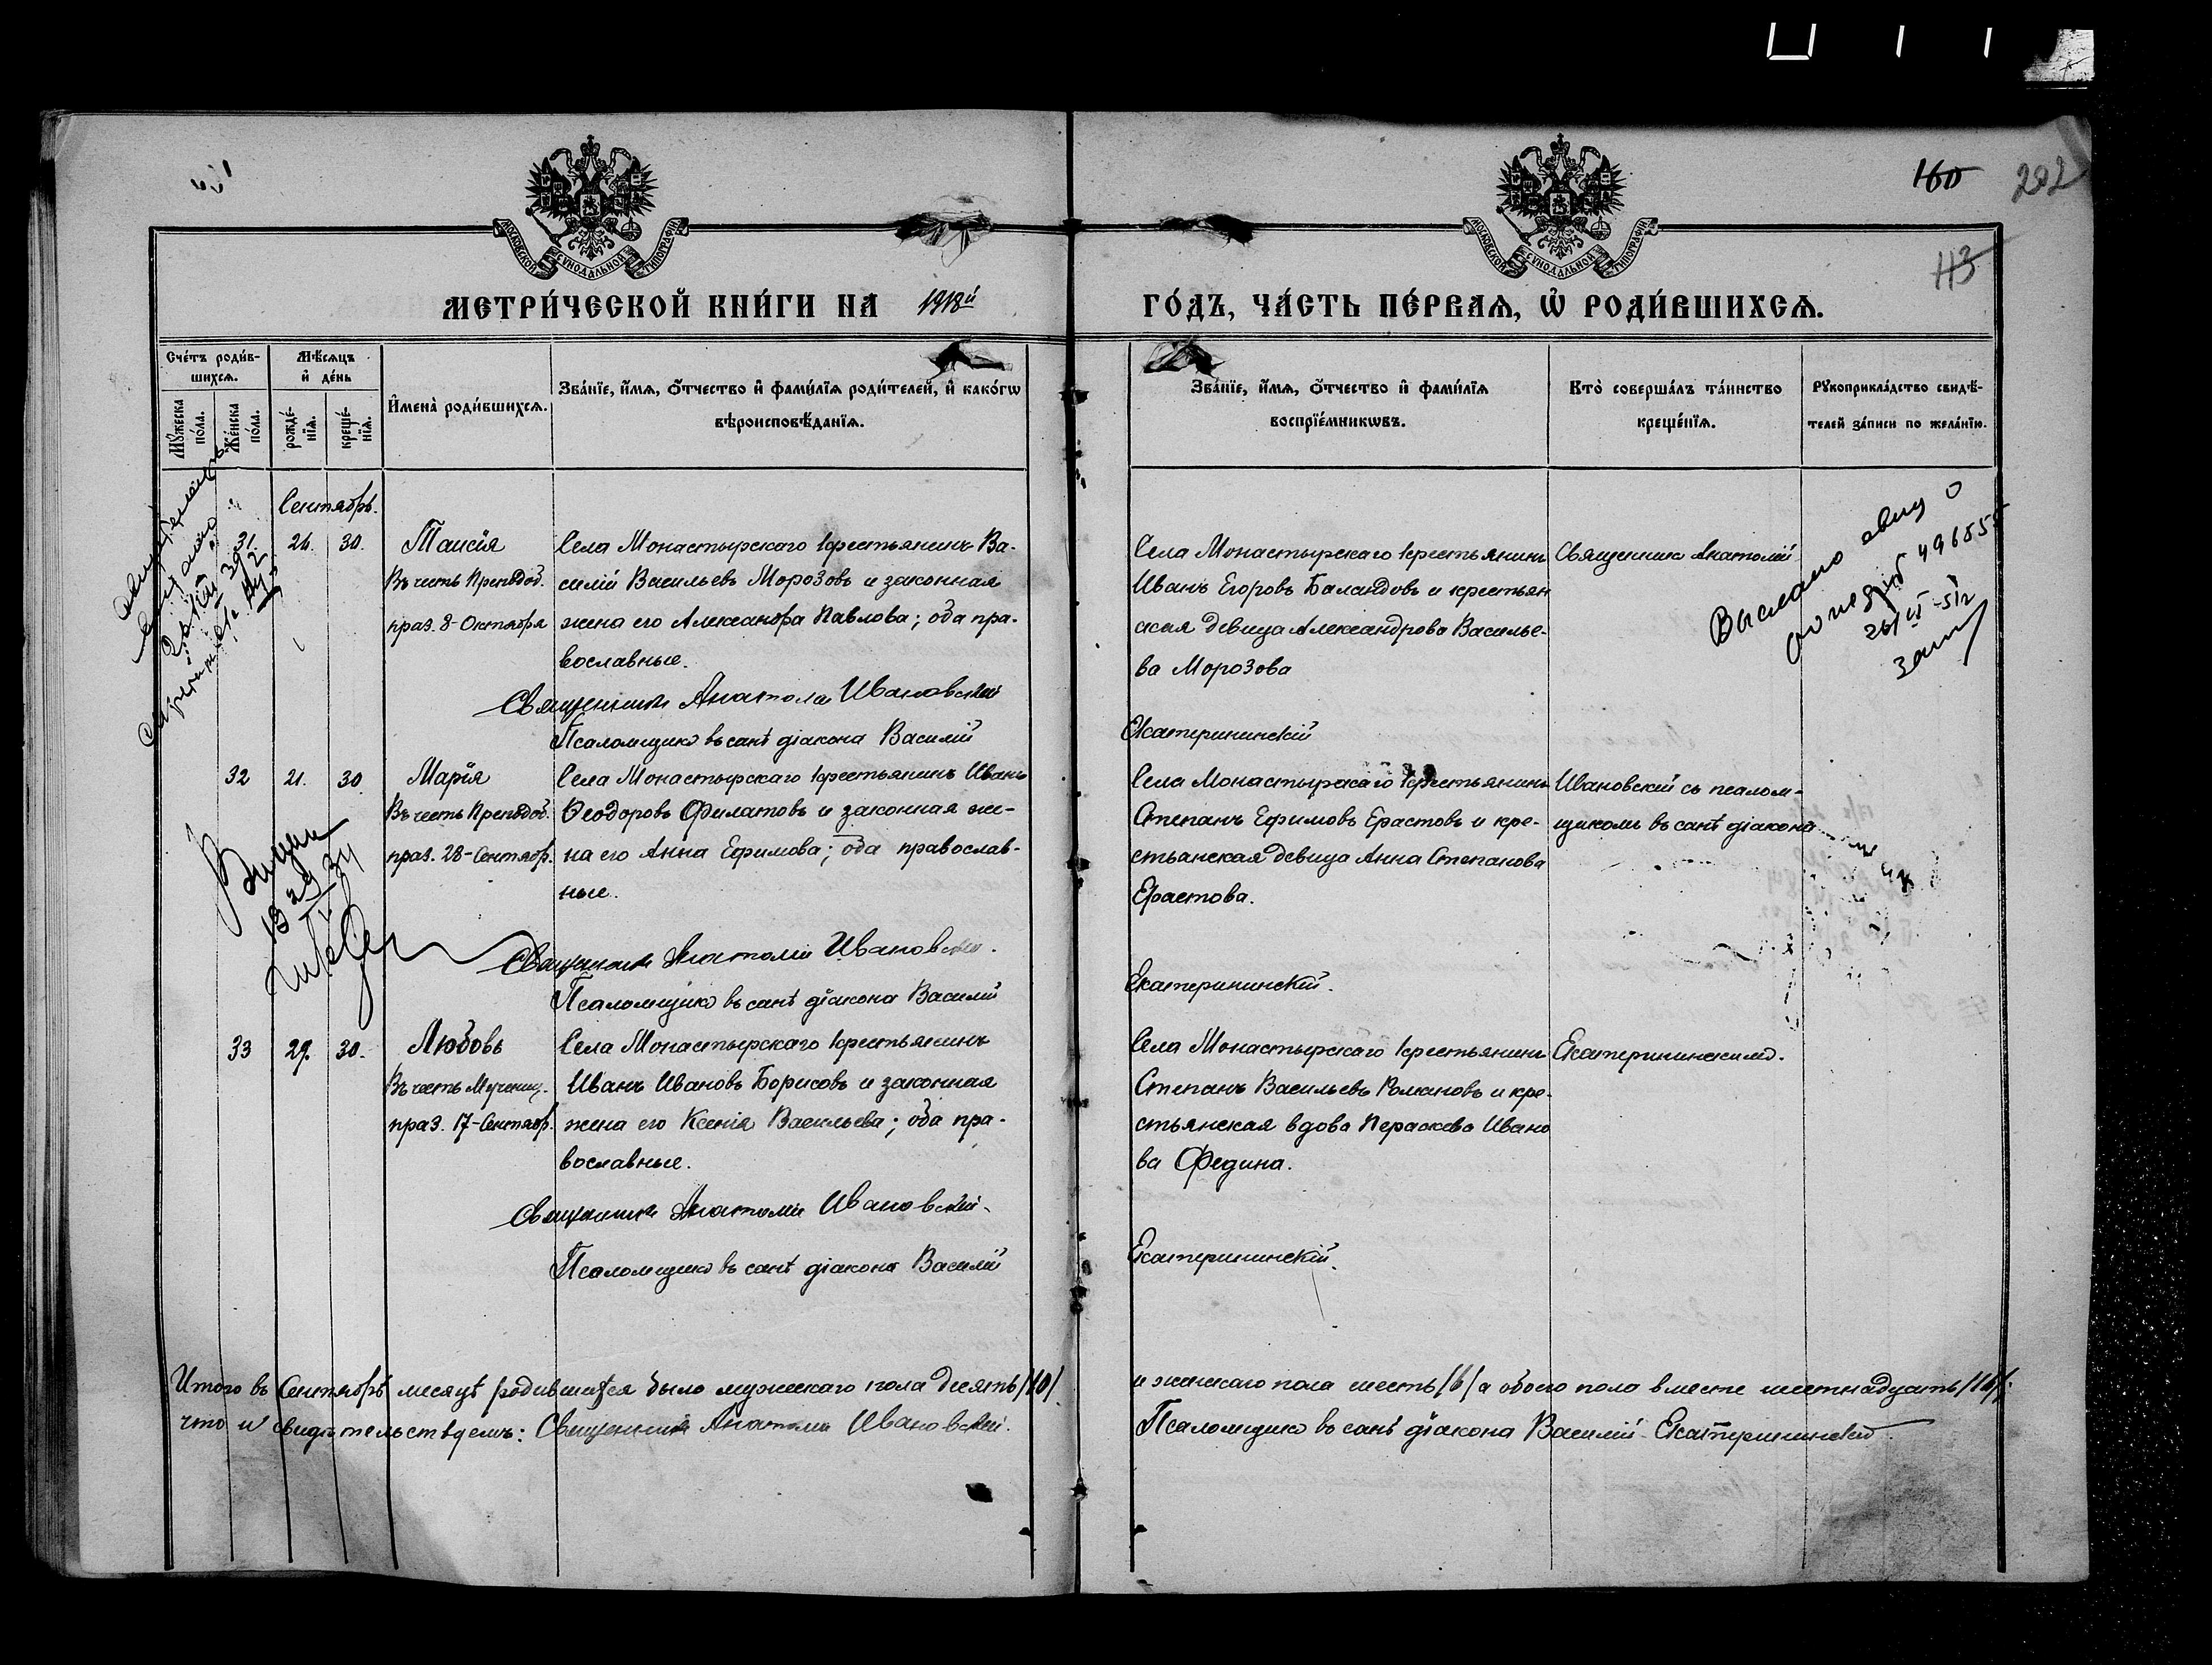 160
202
113
МОСКОВСКОЙ СѴНОДАЛЬНОЙ ТИПОГРАФІИ
МОСКОВСКОЙ СѴНОДАЛЬНОЙ ТИПОГРАФІИ
МЕТРИ́ЧЕСКОЙ КНИ́ГИ НА 1918й
ГО́ДЪ, ЧА́СТЬ ПЕ́РВАѦ, Ѡ҆ РОДИ́ВШИХСѦ.
Сче́тъ роди́в-
шихсѧ.
Мꙋ́жеска по́ла.
Же́нска по́ла.
Мѣ́сѧцъ
и҆ де́нь
рожде́-
нїѧ.
креще́-
нїѧ.
И҆мена̀ роди́вшихсѧ.
Зва́нїе, и҆́мѧ, ѻ҆́тчество и҆ фами́лїѧ роди́телей, и҆ како́гѡ
вѣроисповѣ́данїѧ.
Зва́нїе, и҆́мѧ, ѻ҆́тчество и҆ фами́лїѧ
воспрїе́мникѡвъ.
Кто̀ соверша́лъ та́инство
креще́нїѧ.
Рꙋкоприкла́дство свидѣ́-
телей за́писи по жела́нїю.
Сентябрь.
31. 26. 30.
Таисія
Въ честь Преподоб.
праз. 8-Октября
Села Монастырскаго крестьянинъ Ва-
силій Васильевъ Морозовъ и законная
жена его Александра Павлова; оба пра-
вославные.
Села Монастырскаго крестьянинъ
Иванъ Егоровъ Баландовъ и крестьян
ская девица Александрова Василье-
ва Морозова
Священник Анатолій
Выслано свид о
496555
Священникъ Анатолій Ивановскій
Псаломщикъ въ санѣ діакона Василій
Екатерининскій
32 21. 30.
Марія
Въ честь Преподоб.
праз. 28-Сентябр.
Села Монастырскаго крестьянинъ Иванъ
Ѳеодоровъ Филатовъ и законная же-
на его Анна Ефимова; оба православ-
ные.
Села Монастырскаго крестьянинъ
Степанъ Ефимовъ Ерастовъ и кре-
стьянская девица Анна Степанова
Ерастова.
Ивановскій съ псалом-
щикомъ въ санѣ діакона
Священникъ Анатолій Ивановскій.
Псаломщикъ въ санѣ діакона Василій
Екатерининскій.
33 29. 30.
Любовь
Въ честь Мучениц.
праз. 17-Сентябр.
Села Монастырскаго крестьянинъ
Иванъ Ивановъ Борисовъ и законная
жена его Ксенія Васильева; оба пра-
вославные.
Села Монастырскаго крестьянинъ
Степанъ Васильевъ Романовъ и кре-
стьянская вдова Пераскева Ивано
ва Федина.
Екатерининскимъ.
Священникъ Анатолій Ивановскій.
Псаломщикъ въ санѣ діакона Василій
Екатерининскій.
Итого въ Сентябрѣ месяцѣ родившихся было мужескаго пола десять/10/
и женскаго пола шесть/6/ а обоего пола вместе шестнадцать/16/.
что и свидѣтельствуемъ: Священникъ Анатолій Ивановскій.
Псаломщикъ въ санѣ діакона Василій Екатерининскій